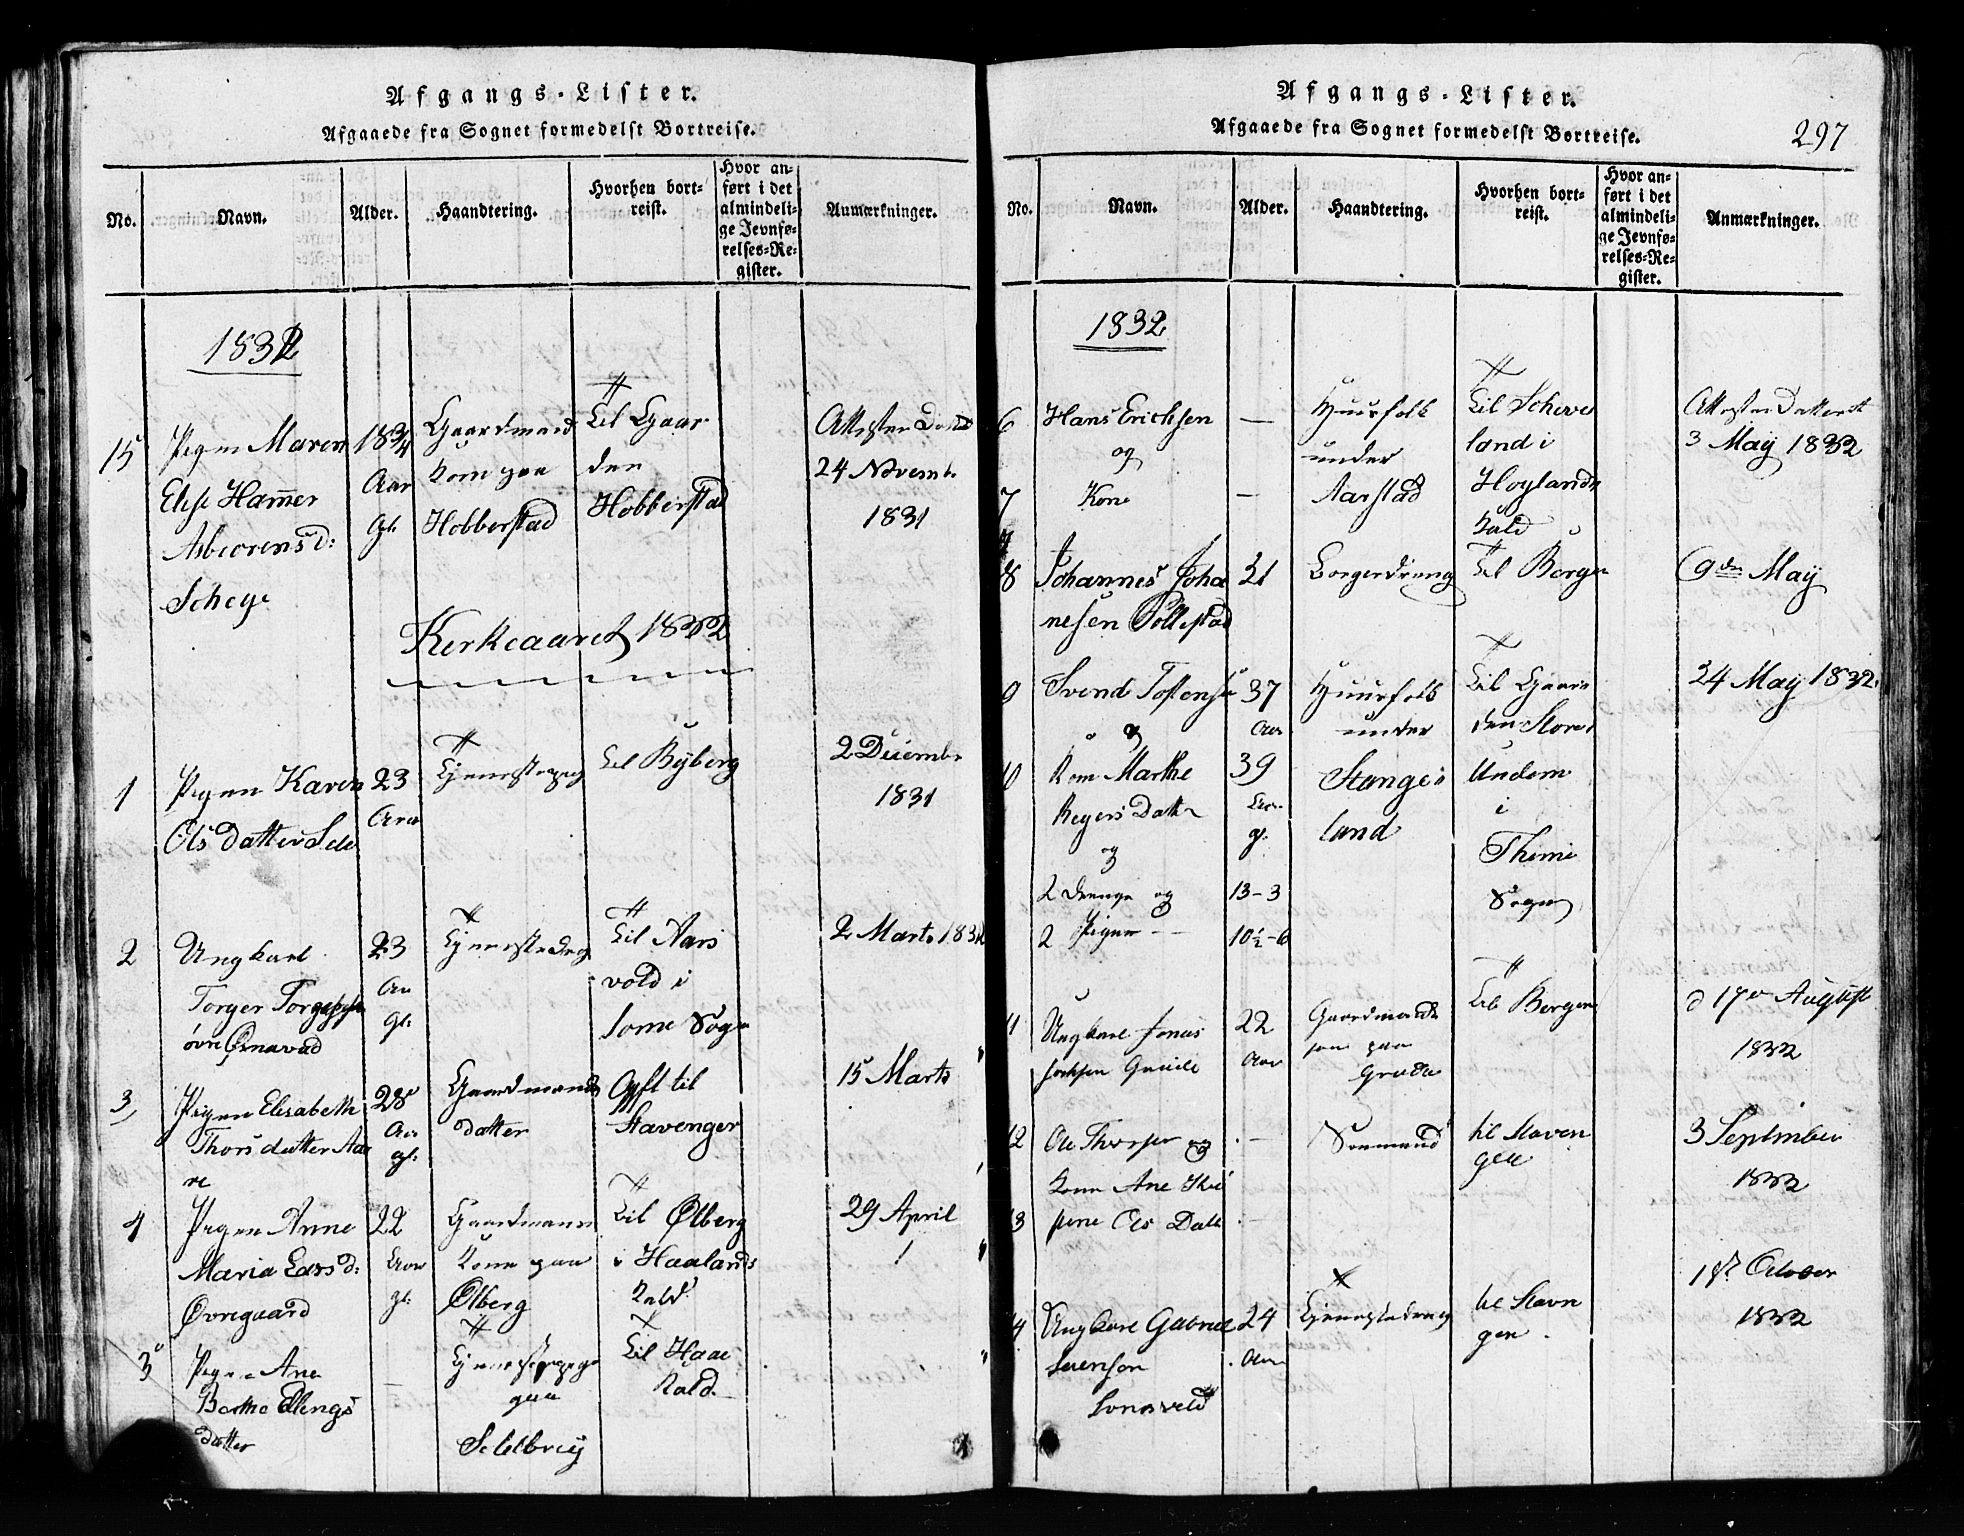 Afgangs-Lister.
Afgaaede fra Sognet formedelst Bortreise.
No.
Navn.
Alder.
Haandtering.
Hvorhen bort-
reist.
Hvor an-
ført i det
almindeli-
ge Jevnfø-
relses-Re-
gister.
Anmærkninger.
1832
15
Pigen Maren
Elise Hammer
Asbeorens d:
Scheye
18 3/4
Aar
gl.
Gaardmand
kone paa
Hobberstad
Til Gaar
den
Hobberstad
Attesten Dat
24 Novemb.
1831
Kerkeaaret 1832
1
Pigen Karen
Ols datter Sele
23
Aar
Tjenestepige
til Byberg
2 Decembr
1831
2
Ungkarl
Torger
øvre
23
Aar
gl:
Tjenestedreng
Til Aars
vold i
Some Sogn
2 Marts 1832
3,
Pigen Elisabeth
Thors datter Aa
re
28
Aar
gl:
Gaardmands
datter
Stavenger
15 Marts
4
Pigen Anne
Maria Lars d:
Øvregaard
22
Aar
gl:
Gaardmann
Kone paa
Ølberg
Til Ølberg
i Haalands
Kald
29 April
5
Pigen Ane
Berthe Ellings
datter
Tjenestepige
paa
Til Haae
Kald
Afgangs-Lister.
Afgaaede fra Sognet formedelst Bortreise.
297
No.
Navn.
Alder.
Haandtering.
Hvorhen bort-
reist.
Hvor an-
ført i det
almindeli-
ge Jevnfø-
relses-Re-
gister.
Anmærkninger.
1832
6
Hans Erichsen
og
7
Kone
—
—
Huusfolk
under
Aarstad
Til Scheve
land i
Hoylands
Kald
Attesten Dateret
3 May 1832
8
Johannes Joha
nesen Pollestad
21
Til Bergen
9de May
9
Svend Tostensen
og
37
Aar
Huusfolk
under
Stange
land
Til Gaar
den Store
Undem
i
Thime
Sogn
24 May 1832.
10
Kone Marthe
Reyers Datter
og
2 drenge og
2 Piger
39
Aar
gl.
13-3
10½-6
11
Ungkarl Jonas
22
Aar
Gaardmands
søn paa
Grude
til Bergen
d 17de August
1832
12
Ole Thorsen og
Kone Ane
13
Ols Datt
Søemand
til Staven
ger
3 September
1832
14
Ungkarl Gabriel
Sørensen
24
Aar
Tjenestedreng
til Stavn
ger
18de October
1832